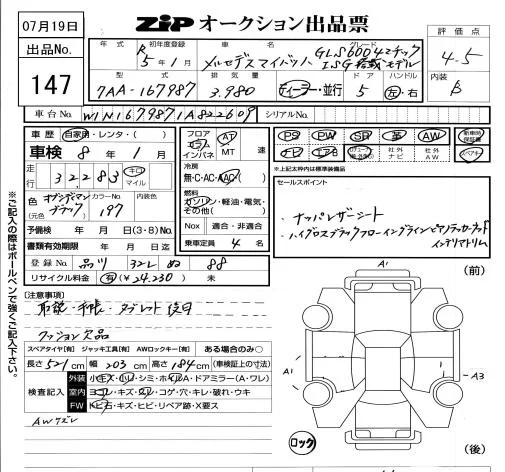 07月19日
ZiP オークション出品票
出品No.
147
年式
R 5年
初年度登録
1月
車名
メルセデスマイバッハ
グレード
GLS600 4マチック
ISG搭載モデル
評価点
4.5
型式
7AA-167987
排気量
3.980
ディーラー・並行
ドア
5
ハンドル
左・右
内装
B
車台No.
W1N1679871A822609
シリアルNo.
車歴 自家用・レンタ( )
車検 8年 1月
走行 32283 キロ マイル
色 オブシディアンブラック
(元色)
カラーNo
197
内装色
予備検 年 月 日(3・8)No.
書類有効期限 年 月 日迄
登録No. 品川 322 ぬ 88
リサイクル料金 有(¥24.230) 未
フロア
コラム
インパネ
AT
MT 速
冷房
無・C・AC・WAC
燃料
ガソリン・軽油・電気・その他( )
Nox 適合・非適合
乗車定員 4 名
PS PW SR 革 AW 新車時保証書
社外ナビ 社外AW
*上記太枠は標準装備品
セールスポイント
・ナッパレザーシート
・ハイグロスブラックフローイングラインピアノラッカーウッド
インテリアトリム
[注意事項]
取説・手帳・タブレット後日
クッション欠品
スペアタイヤ[有] ジャッキ工具[有] AWロックキー[有] ある場合のみ○
長さ 521cm 幅 203cm 高さ 184cm (車検証上の寸法)
検査記入
外装
室内
FW
トビ石・キズ・ヒビ・リペア跡・X要ス
AWキズ
※ご記入の際はボールペンで強くご記入下さい。
A1 (前)
A1 A3
ロック (後)